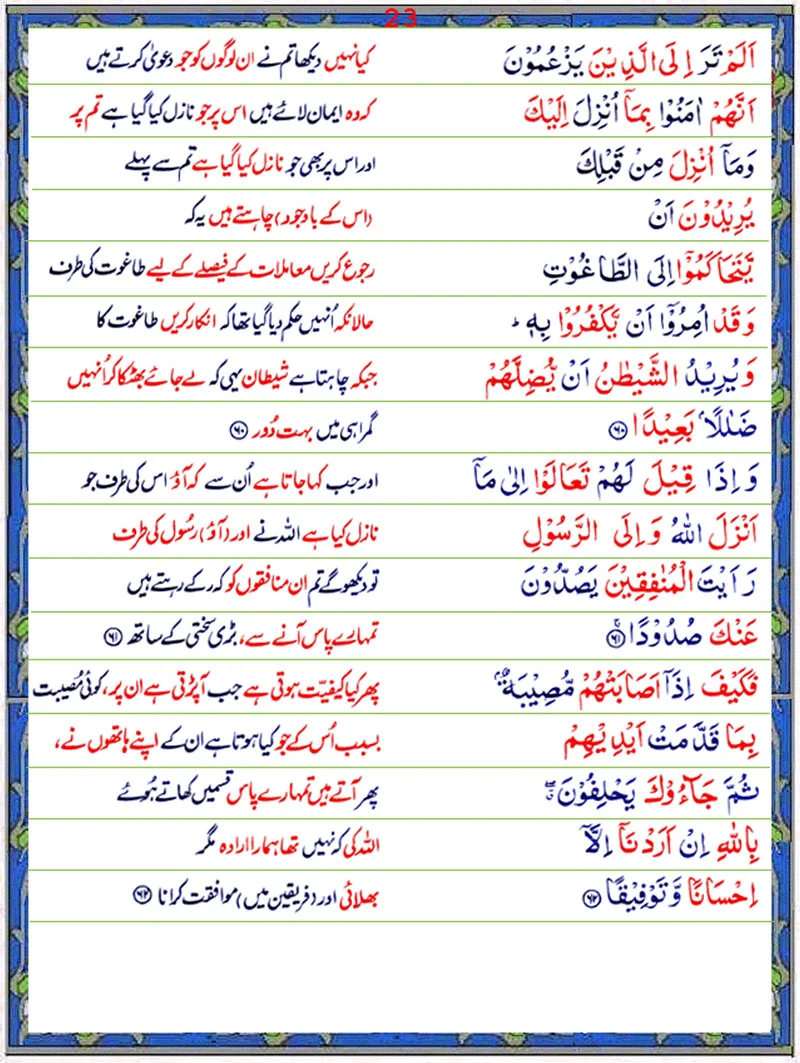 23
اَلَمْ تَرَ اِلَى الَّذِيْنَ يَزْعُمُوْنَ کیا نہیں دیکھا تم نے ان لوگوں کو جو دعویٰ کرتے ہیں
اَنَّهُمْ اٰمَنُوْا بِمَاۤ اُنْزِلَ اِلَيْكَ کہ وہ ایمان لائے ہیں اس پر جو نازل کیا گیا ہے تم پر
وَمَاۤ اُنْزِلَ مِنْ قَبْلِكَ اور اس پر بھی جو نازل کیا گیا ہے تم سے پہلے
يُرِيْدُوْنَ اَنْ (اس کے باوجود) چاہتے ہیں یہ کہ
يَّتَحَاكَمُوْۤا اِلَى الطَّاغُوْتِ رجوع کریں معاملات کے فیصلے کے لیے طاغوت کی طرف
وَقَدْ اُمِرُوْۤا اَنْ يَّكْفُرُوْا بِهٖ ؕ حالانکہ اُنہیں حکم دیا گیا تھا کہ انکار کریں طاغوت کا
وَيُرِيْدُ الشَّيْطٰنُ اَنْ يُّضِلَّهُمْ جبکہ چاہتا ہے شیطان یہی کہ لے جائے بھٹکا کر اُنہیں
ضَلٰلًاۢ بَعِيْدًا ﴿۶۰﴾ گمراہی میں بہت دُور ﴿۶۰﴾
وَاِذَا قِيْلَ لَهُمْ تَعَالَوْا اِلٰى مَاۤ اور جب کہا جاتا ہے اُن سے کہ آؤ اس کی طرف جو
اَنْزَلَ اللّٰهُ وَاِلَى الرَّسُوْلِ نازل کیا ہے اللہ نے اور (آؤ) رسُول کی طرف
رَاَيْتَ الْمُنٰفِقِيْنَ يَصُدُّوْنَ تو دیکھو گے تم ان منافقوں کو کہ رکے رہتے ہیں
عَنْكَ صُدُوْدًا ۚ﴿۶۱﴾ تمہارے پاس آنے سے، بڑی سختی کے ساتھ ﴿۶۱﴾
فَكَيْفَ اِذَاۤ اَصَابَتْهُمْ مُّصِيْبَةٌۢ پھر کیا کیفیّت ہوتی ہے جب آ پڑتی ہے ان پر، کوئی مُصیبت
بِمَا قَدَّمَتْ اَيْدِيْهِمْ بسبب اُس کے جو کیا ہوتا ہے ان کے اپنے ہاتھوں نے،
ثُمَّ جَآءُوْكَ يَحْلِفُوْنَ ۖ پھر آتے ہیں تمہارے پاس قسمیں کھاتے ہُوئے
بِاللّٰهِ اِنْ اَرَدْنَاۤ اِلَّاۤ اللہ کی کہ نہیں تھا ہمارا ارادہ مگر
اِحْسَانًا وَّتَوْفِيْقًا ﴿۶۲﴾ بھلائی اور (فریقین میں) موافقت کرانا ﴿۶۲﴾